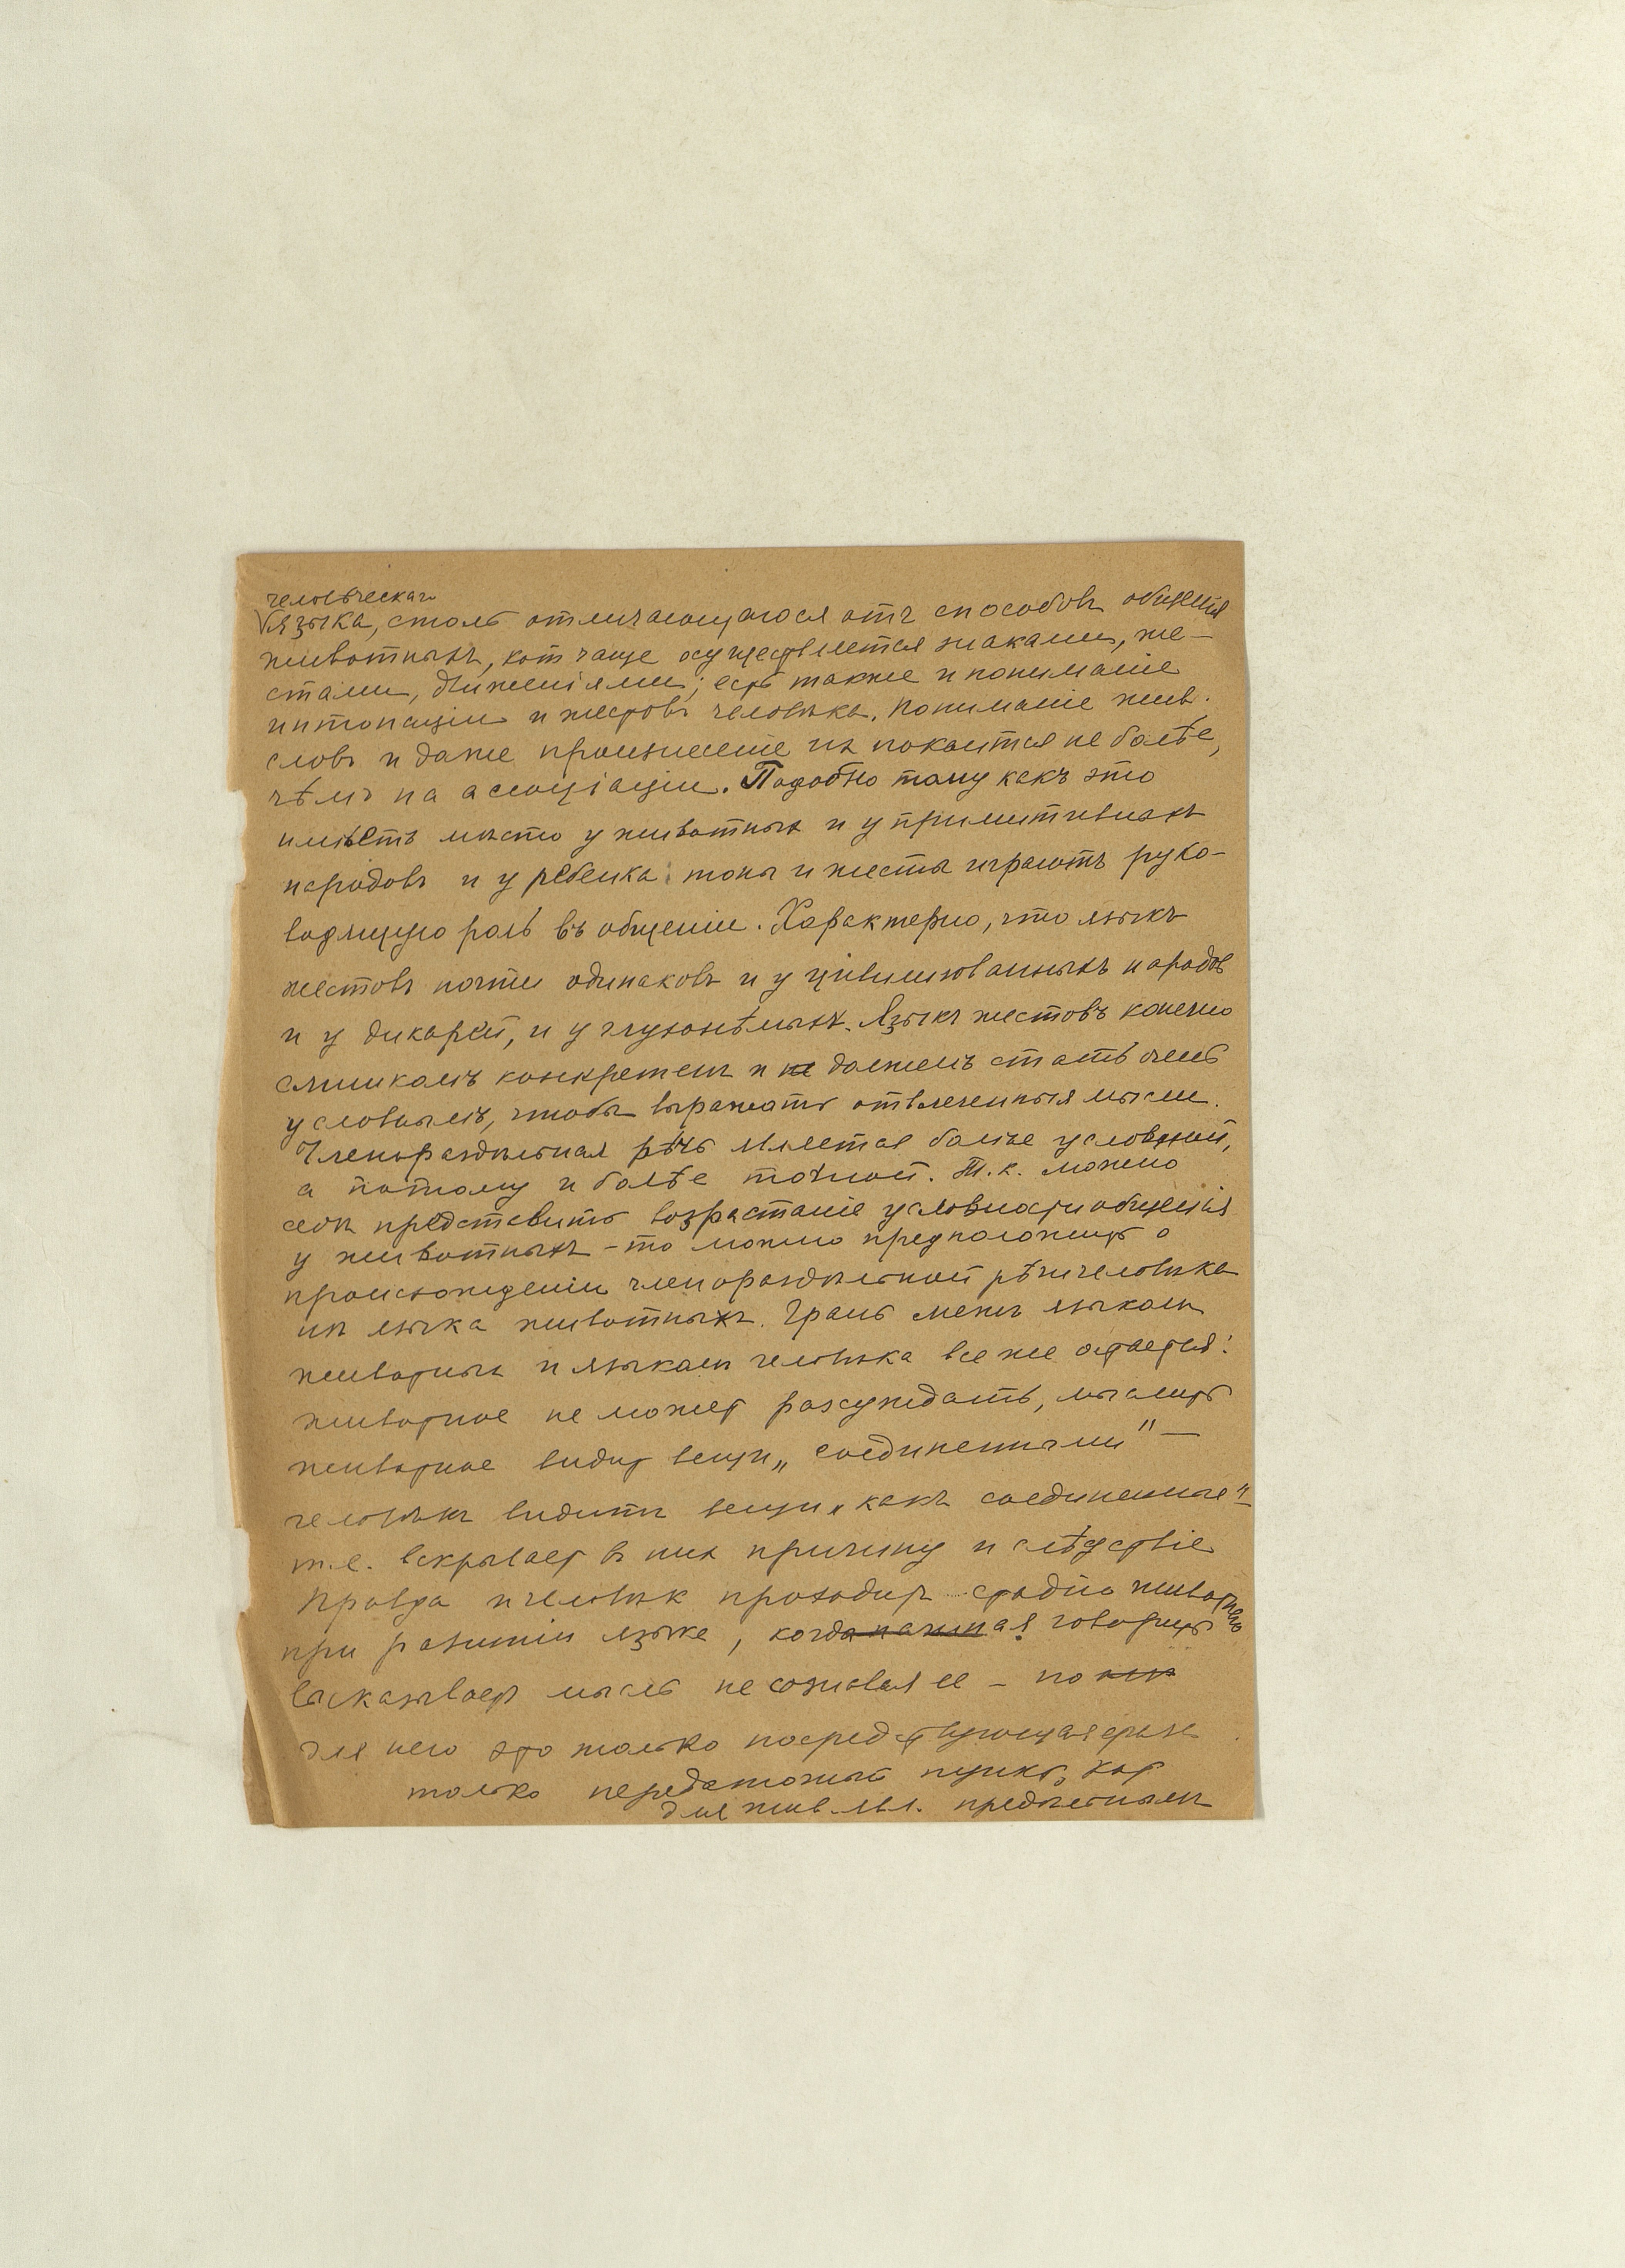 человѣческаго
языка, столь отличающагося отъ способовъ общенія
животныхъ, кот чаще осуществляется знаками, же-
стами, движеніями; есть также и пониманіе
интонаціи и жестовъ человѣка. Пониманіе жив.
словъ и даже произнесеніе их покоится не болѣе,
чѣмъ на ассоціаціи. Подобно тому какъ это
имѣетъ мѣсто у животных и у примитивныхъ
народовъ и у ребенка тоны и жесты играютъ руко-
водящую роль въ общеніи. Характерно, что языкъ
жестовъ почти одинаковъ и у цивилизованныхъ народов
и у дикарей, и у глухонѣмыхъ. Языкъ жестовъ конечно
слишкомъ конкретенъ и не долженъ стать очень
условнымъ, чтобы выражать отвлеченныя мысли.
Членораздѣльная рѣчь является болѣе условной,
а потому и болѣе точной. Т. к. можно
себѣ представить возрастаніе условности общенія
у животныхъ - то можно предположить о
происхожденіи членораздѣльной рѣчи человѣка
изъ языка животныхъ. Грань межъ языкомъ
животных и языкомъ человѣка все же остается:
животное не может разсуждать, мыслить
животное видит вещи „соединенными" —
человѣкъ видитъ вещи „какъ соединенные"-
т.е. вскрывает в них причину и слѣдствіе
Правда и человѣк проходит стадію животнаго
при развитіи языка, когда начиная говорить
высказывает мысль не сознавая ее - но
для него это только посредствующая фраза
только передаточный пунктъ, кот
для жив. явл. предѣльнымъ